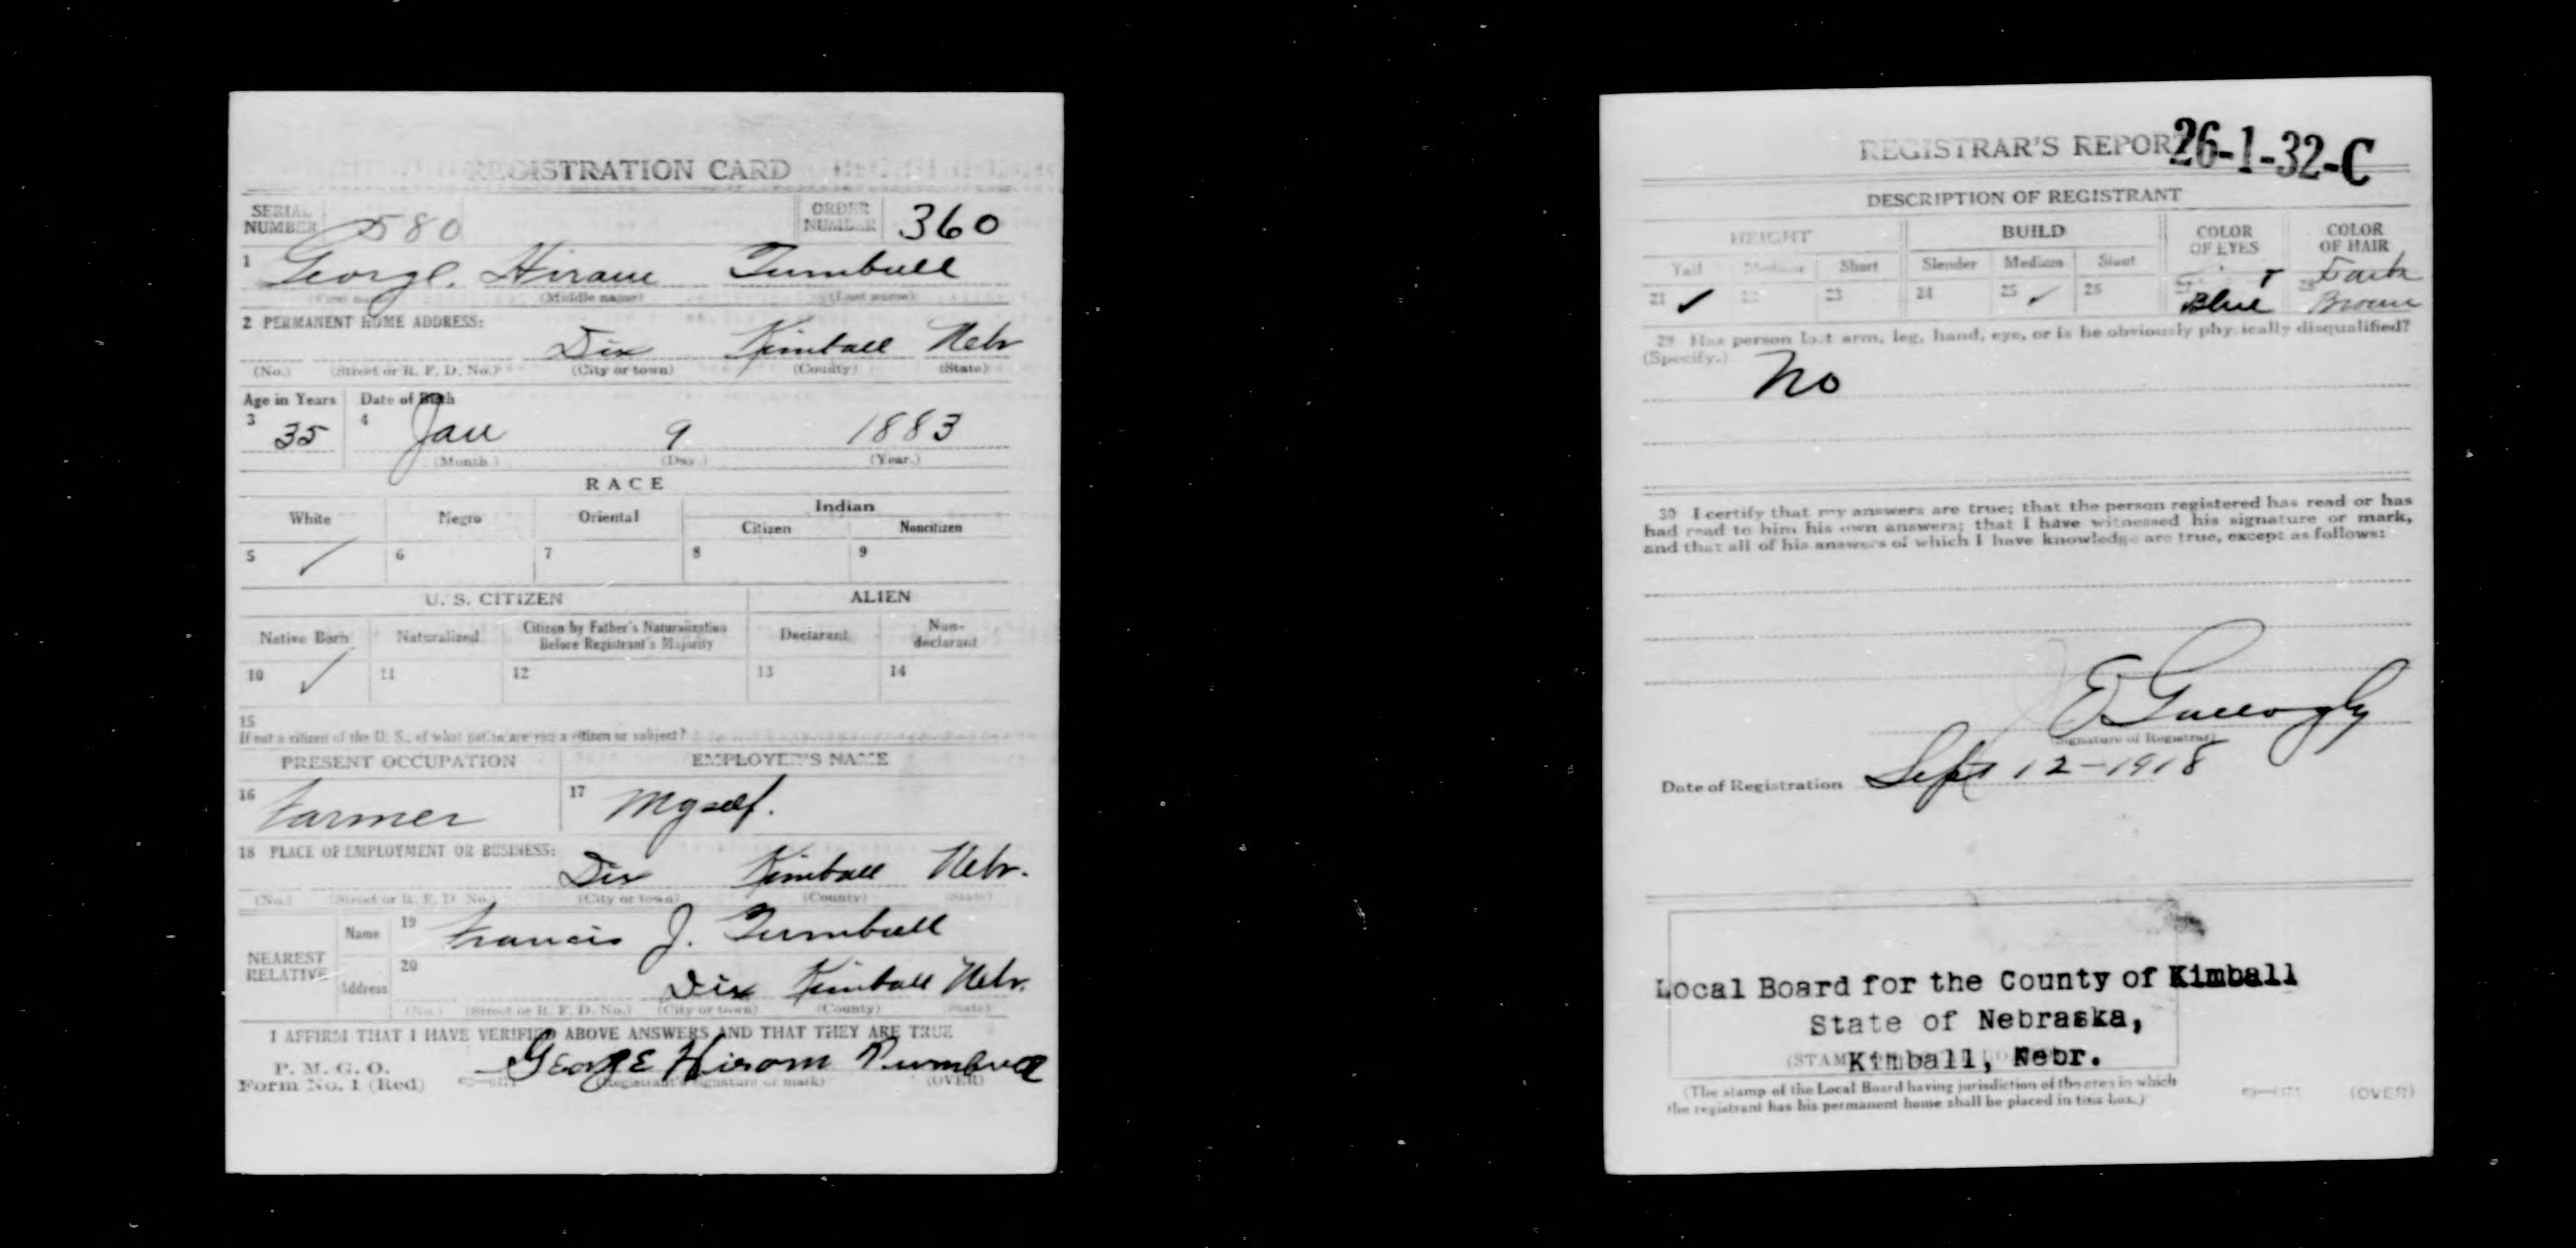 REGISTRATION CARD
SERIAL NUMBER 580 ORDER NUMBER 360
1 George Hiram Turnbull
(First name) (Middle name) (Last name)
2 PERMANENT HOME ADDRESS:
Dix Kimball Nebr
(No.) (Street or R. F. D. No.) (City or town) (County) (State)
Age in Years Date of Birth
3 35 4 Jan 9 1883
(Month.) (Day.) (Year.)
RACE
White Negro Oriental Indian
Citizen Noncitizen
5 ✓ 6 7 8 9
U. S. CITIZEN ALIEN
Native Born Naturalized Citizen by Father's Naturalization Before Registrant's Majority Declarant Non-declarant
10 ✓ 11 12 13 14
15
If not a citizen of the U. S., of what nation are you a citizen or subject?
PRESENT OCCUPATION EMPLOYER'S NAME
16 Farmer 17 Myself.
18 PLACE OF EMPLOYMENT OR BUSINESS:
Dix Kimball Nebr.
(No.) (Street or R. F. D. No.) (City or town) (County) (State)
NEAREST RELATIVE Name 19 Francis J. Turnbull
Address 20 Dix Kimball Nebr.
(No.) (Street or R. F. D. No.) (City or town) (County) (State)
I AFFIRM THAT I HAVE VERIFIED ABOVE ANSWERS AND THAT THEY ARE TRUE
P. M. G. O.
Form No. 1 (Red) George Hirom Turnbull
(Registrant's signature or mark) (OVER)
REGISTRAR'S REPORT 26-1-32-C
DESCRIPTION OF REGISTRANT
HEIGHT BUILD COLOR OF EYES COLOR OF HAIR
Tall Medium Short Slender Medium Stout
21 ✓ 22 23 24 25 ✓ 26 27 Blue 28 Dark Brown
29 Has person lost arm, leg, hand, eye, or is he obviously physically disqualified?
(Specify.) No
30 I certify that my answers are true; that the person registered has read or has
had read to him his own answers; that I have witnessed his signature or mark,
and that all of his answers of which I have knowledge are true, except as follows:
(Signature of Registrar)
Date of Registration Sept 12-1918
Local Board for the County of Kimball
State of Nebraska,
Kimball, Nebr.
(The stamp of the Local Board having jurisdiction of the area in which
the registrant has his permanent home shall be placed in this box.)
(OVER)